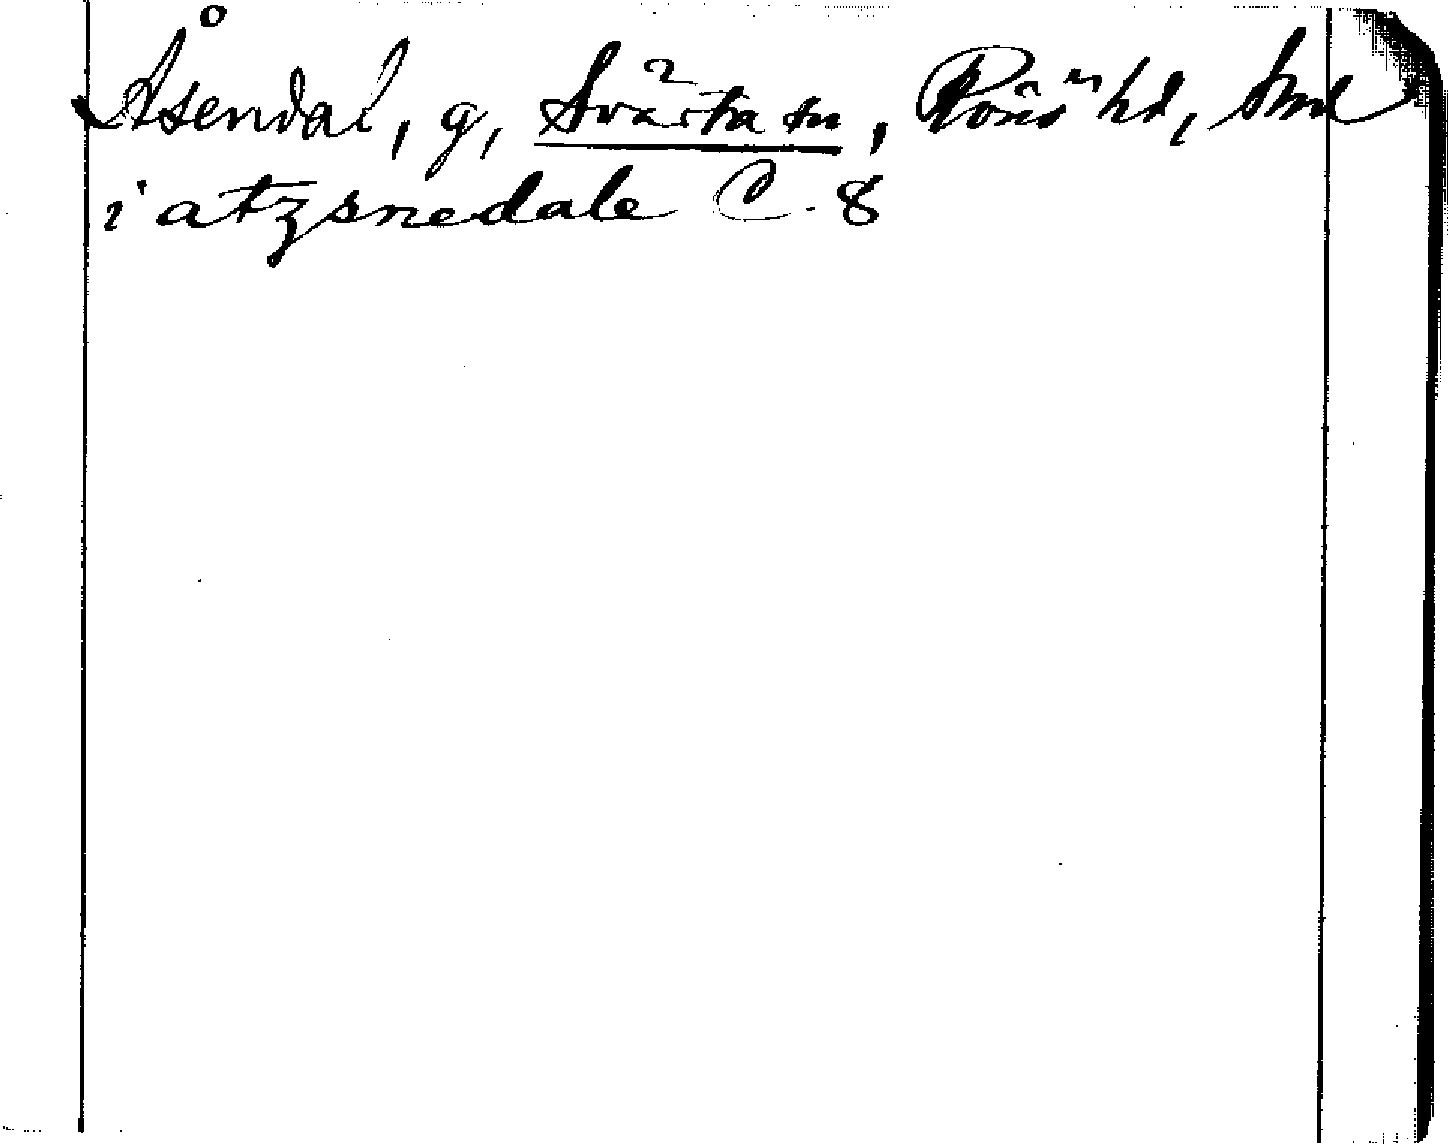 Åsendal, g, Svärta sn, Rönö hd, Smd
i atzsnedale C. 8